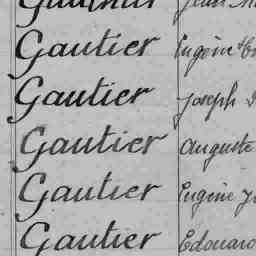 Gautier Jean
Gautier Eugène
Gautier Joseph
Gautier Auguste
Gautier Eugène
Gautier Edouard